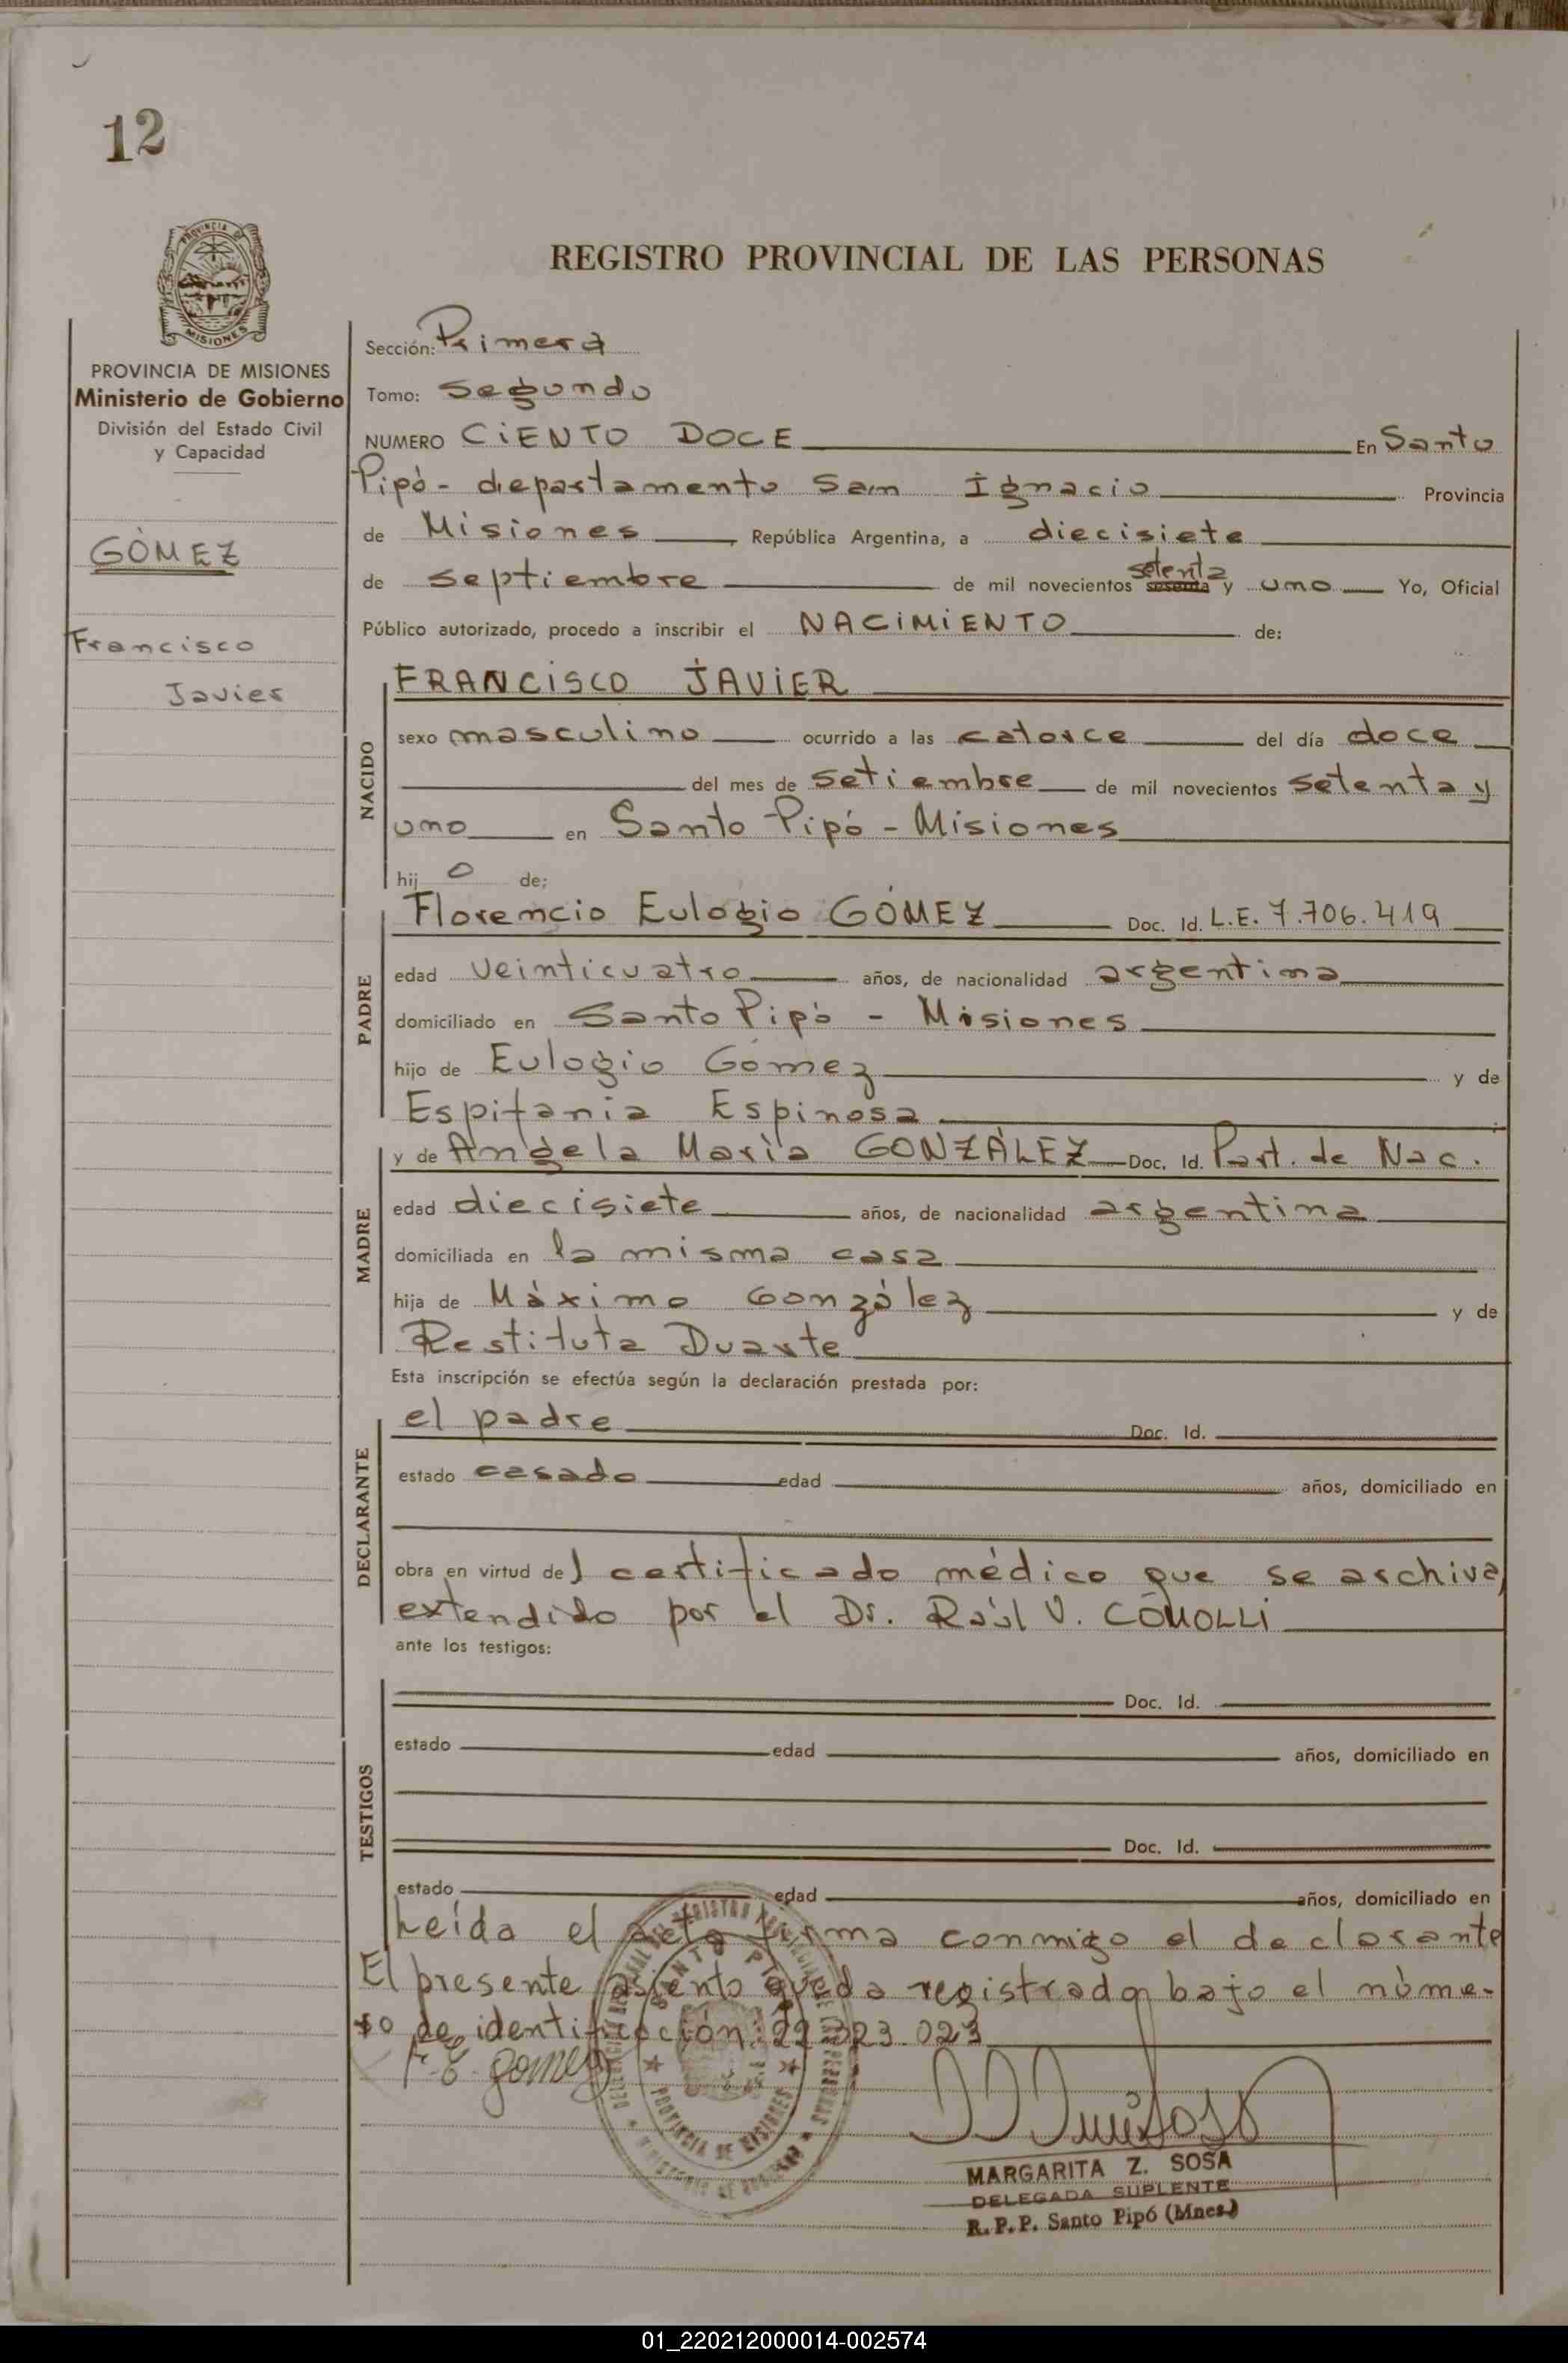 12
PROVINCIA DE
MISIONES
PROVINCIA DE MISIONES
Ministerio de Gobierno
División del Estado Civil
y Capacidad
GÓMEZ
Francisco
Javier
REGISTRO PROVINCIAL DE LAS PERSONAS
Sección: Primera
Tomo: Segundo
NUMERO CIENTO DOCE En Santo
Pipó - departamento San Ignacio Provincia
de Misiones República Argentina, a diecisiete
setenta
de septiembre de mil novecientos sesenta y uno Yo, Oficial
Público autorizado, procedo a inscribir el NACIMIENTO de:
NACIDO
FRANCISCO JAVIER
sexo masculino ocurrido a las catorce del día doce
del mes de setiembre de mil novecientos setenta y
uno en Santo Pipó - Misiones
hij o de:
PADRE
Florencio Eulogio GÓMEZ Doc. Id. L.E. 7.706.419
edad veinticuatro años, de nacionalidad argentina
domiciliado en Santo Pipó - Misiones
hijo de Eulogio Gómez y de
Espifania Espinosa
MADRE
y de Angela María GONZÁLEZ Doc. Id. Part. de Nac.
edad diecisiete años, de nacionalidad argentina
domiciliada en la misma casa
hija de Máximo González y de
Restituta Duarte
Esta inscripción se efectúa según la declaración prestada por:
DECLARANTE
el padre Doc. Id.
estado casado edad años, domiciliado en
obra en virtud del certificado médico que se archiva,
extendido por el Dr. Raúl V. COMOLLI
ante los testigos:
TESTIGOS
Doc. Id.
estado edad años, domiciliado en
Doc. Id.
estado edad años, domiciliado en
Leída el acta firma conmigo el declarante
El presente asiento queda registrado bajo el núme-
ro de identificación: 22.323.023
F. E. gomez
SANTO PIPO
PROVINCIA DE MISIONES
MARGARITA Z. SOSA
DELEGADA SUPLENTE
R.P.P. Santo Pipó (Mnes.)
01_220212000014-002574